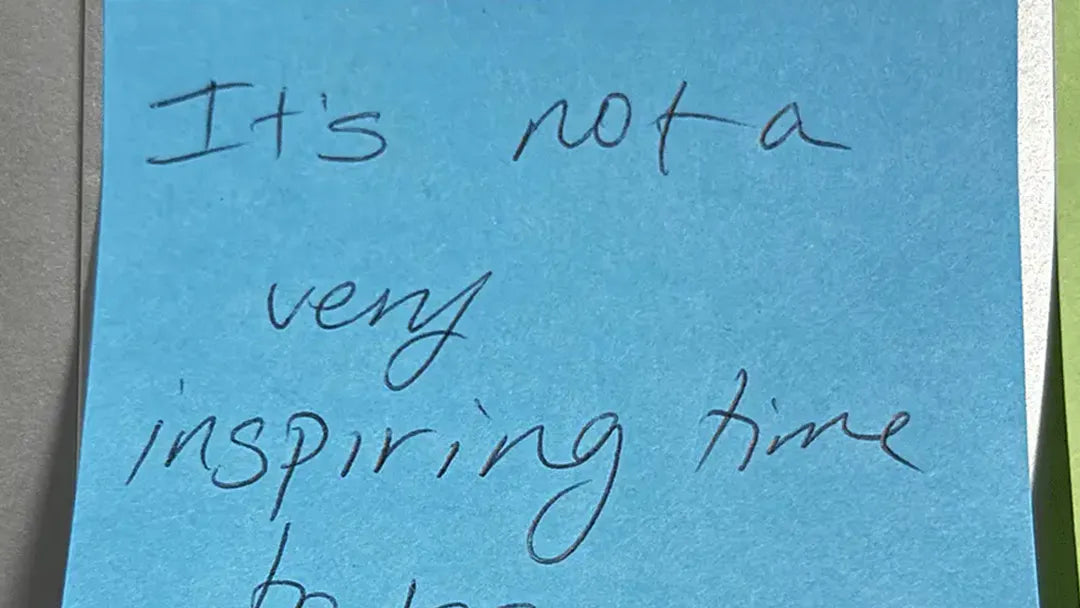 It's not a
very
inspiring time